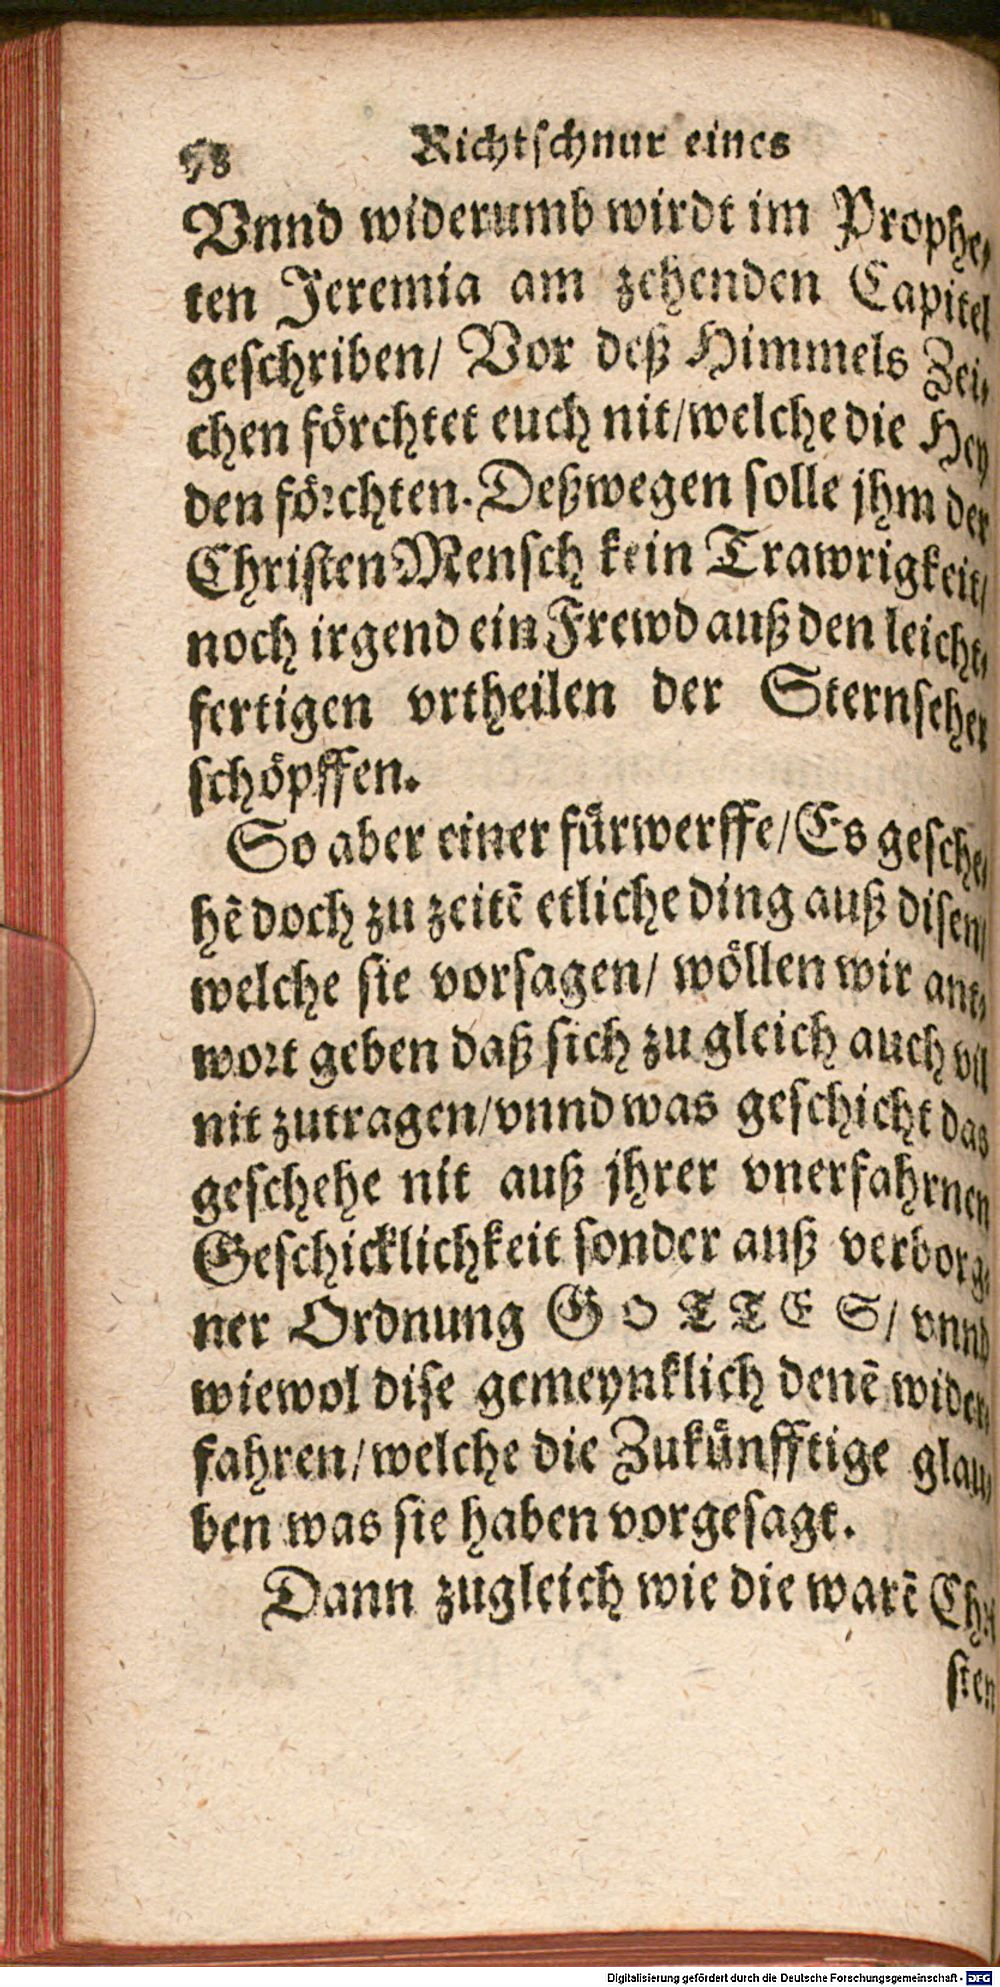 58 Richtschnur eines
Vnnd widerumb wirdt im Prophe,
ten Jeremia am zehenden Capitel
geschriben/ Vor deß Himmels Zei,
chen förchtet euch nit/welche die Hey
den förchten. Deßwegen solle jhm der
Christen Mensch kein Trawrigkeit/
noch irgend ein Frewd auß den leicht,
fertigen vrtheilen der Sternseher
schöpffen.
So aber einer fürwerffe/Es gesche,
hẽ doch zu zeitẽ etliche ding auß disen/
welche sie vorsagen/ wöllen wir ant,
wort geben daß sich zu gleich auch vil
nit zutragen/vnnd was geschicht das
geschehe nit auß jhrer vnerfahrnen
Geschicklichkeit sonder auß verborg,
ner Ordnung GOTTES/ vnnd
wiewol dise gemeynklich denẽ wider,
fahren/welche die Zukünfftige glau,
ben was sie haben vorgesagt.
Dann zugleich wie die warẽ Chri
sten
Digitalisierung gefördert durch die Deutsche Forschungsgemeinschaft - DFG